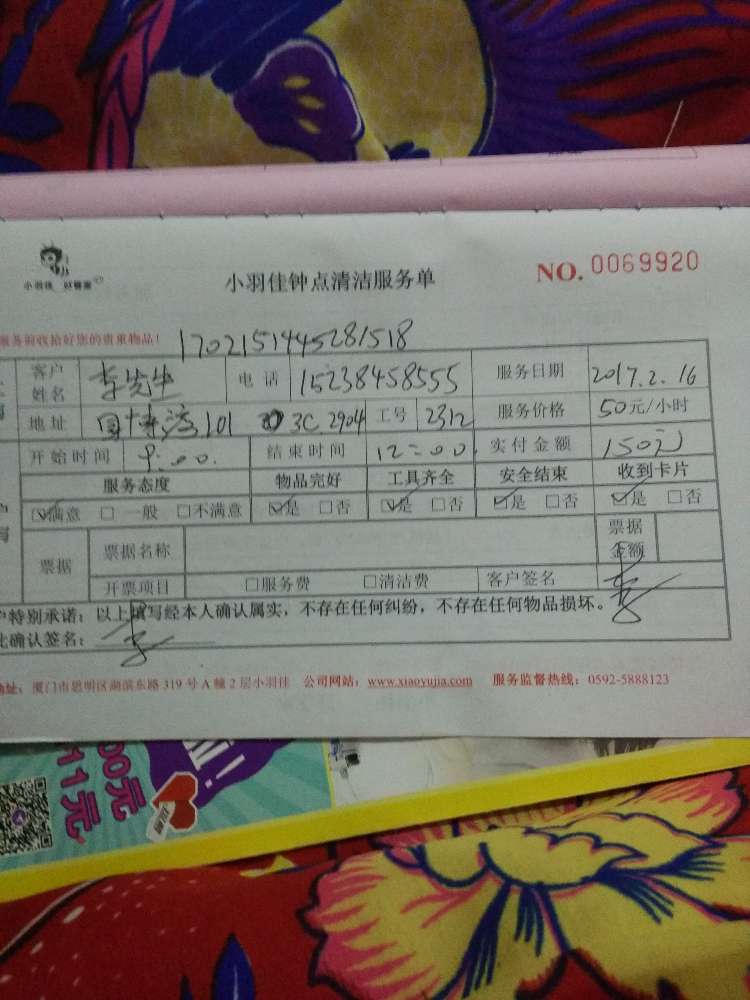 小羽佳 好管家
小羽佳钟点清洁服务单 NO. 0069920
服务前收拾好您的贵重物品!
1702151445281518
客户姓名 李先生 电话 15238458555 服务日期 2017.2.16
地址 国博湾101 3C 2904 工号 2312 服务价格 50元/小时
开始时间 9:00. 结束时间 12:00 实付金额 150元
服务态度 物品完好 工具齐全 安全结束 收到卡片
☑满意 □一般 □不满意 ☑是 □否 ☑是 □否 ☑是 □否 ☑是 □否
票据 票据名称 票据金额
开票项目 □服务费 □清洁费 客户签名 李
户特别承诺:以上填写经本人确认属实,不存在任何纠纷,不存在任何物品损坏。
此确认签名: 李
地址:厦门市思明区湖滨东路319号A幢2层小羽佳 公司网站:www.xiaoyujia.com 服务监督热线:0592-5888123
00元
11元